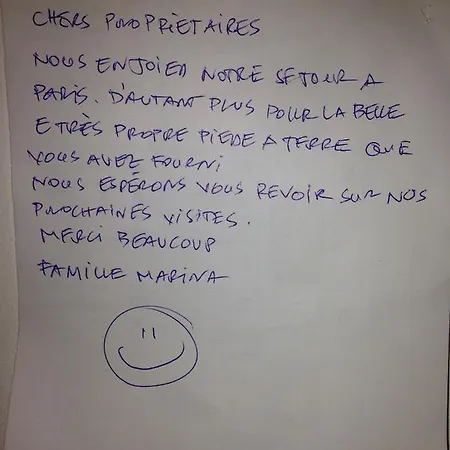 CHERS PROPRIÈTAIRES
NOUS ENJOIED NOTRE SEJOUR A
PARIS. D'AUTANT PLUS POUR LA BELLE
E TRÈS PROPRE PIEDE A TERRE QUE
VOUS AVEZ FOURNI
NOUS ESPÉRONS VOUS REVOIR SUR NOS
PROCHAINES VISITES.
MERCI BEAUCOUP
FAMILLE MARINA